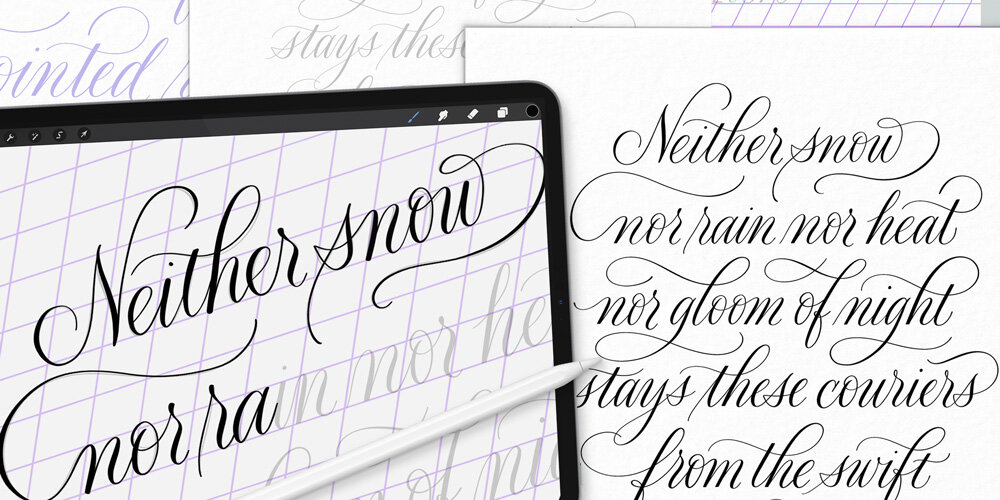 ointed
stays these
Neither snow
nor rain nor he
of ni
Neither snow
nor rain nor heat
nor gloom of night
stays these couriers
from the swift